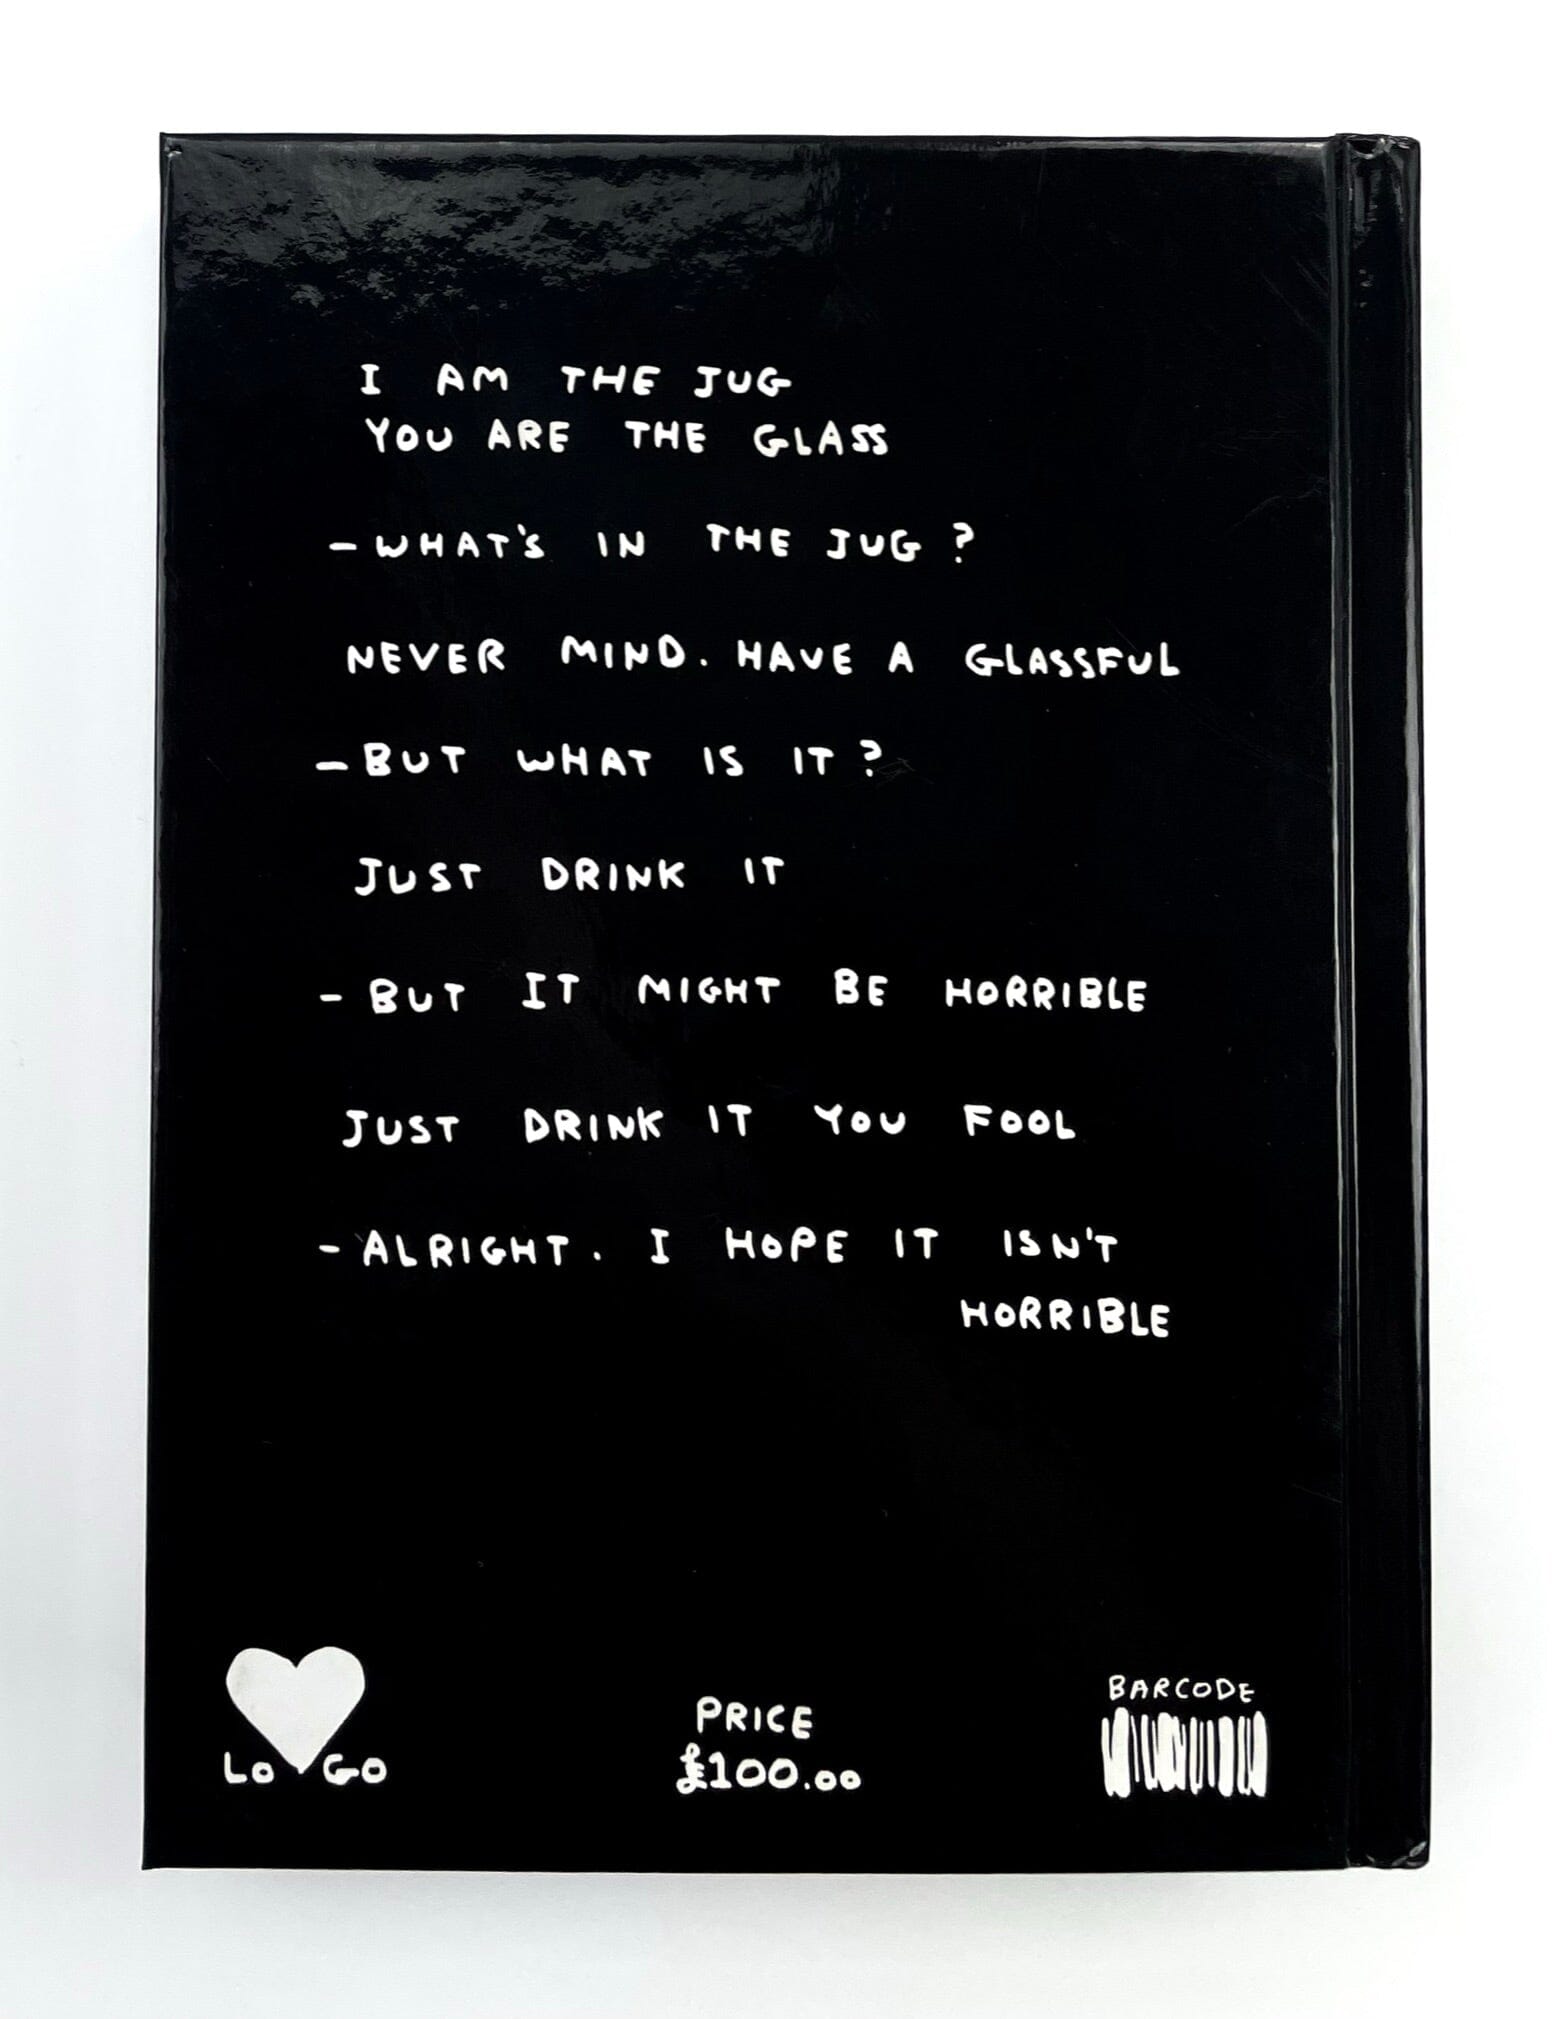 I AM THE JUG
YOU ARE THE GLASS
- WHAT'S IN THE JUG ?
NEVER MIND. HAVE A GLASSFUL
- BUT WHAT IS IT ?
JUST DRINK IT
- BUT IT MIGHT BE HORRIBLE
JUST DRINK IT YOU FOOL
- ALRIGHT. I HOPE IT ISN'T
HORRIBLE
LO GO
PRICE
£100.00
BARCODE